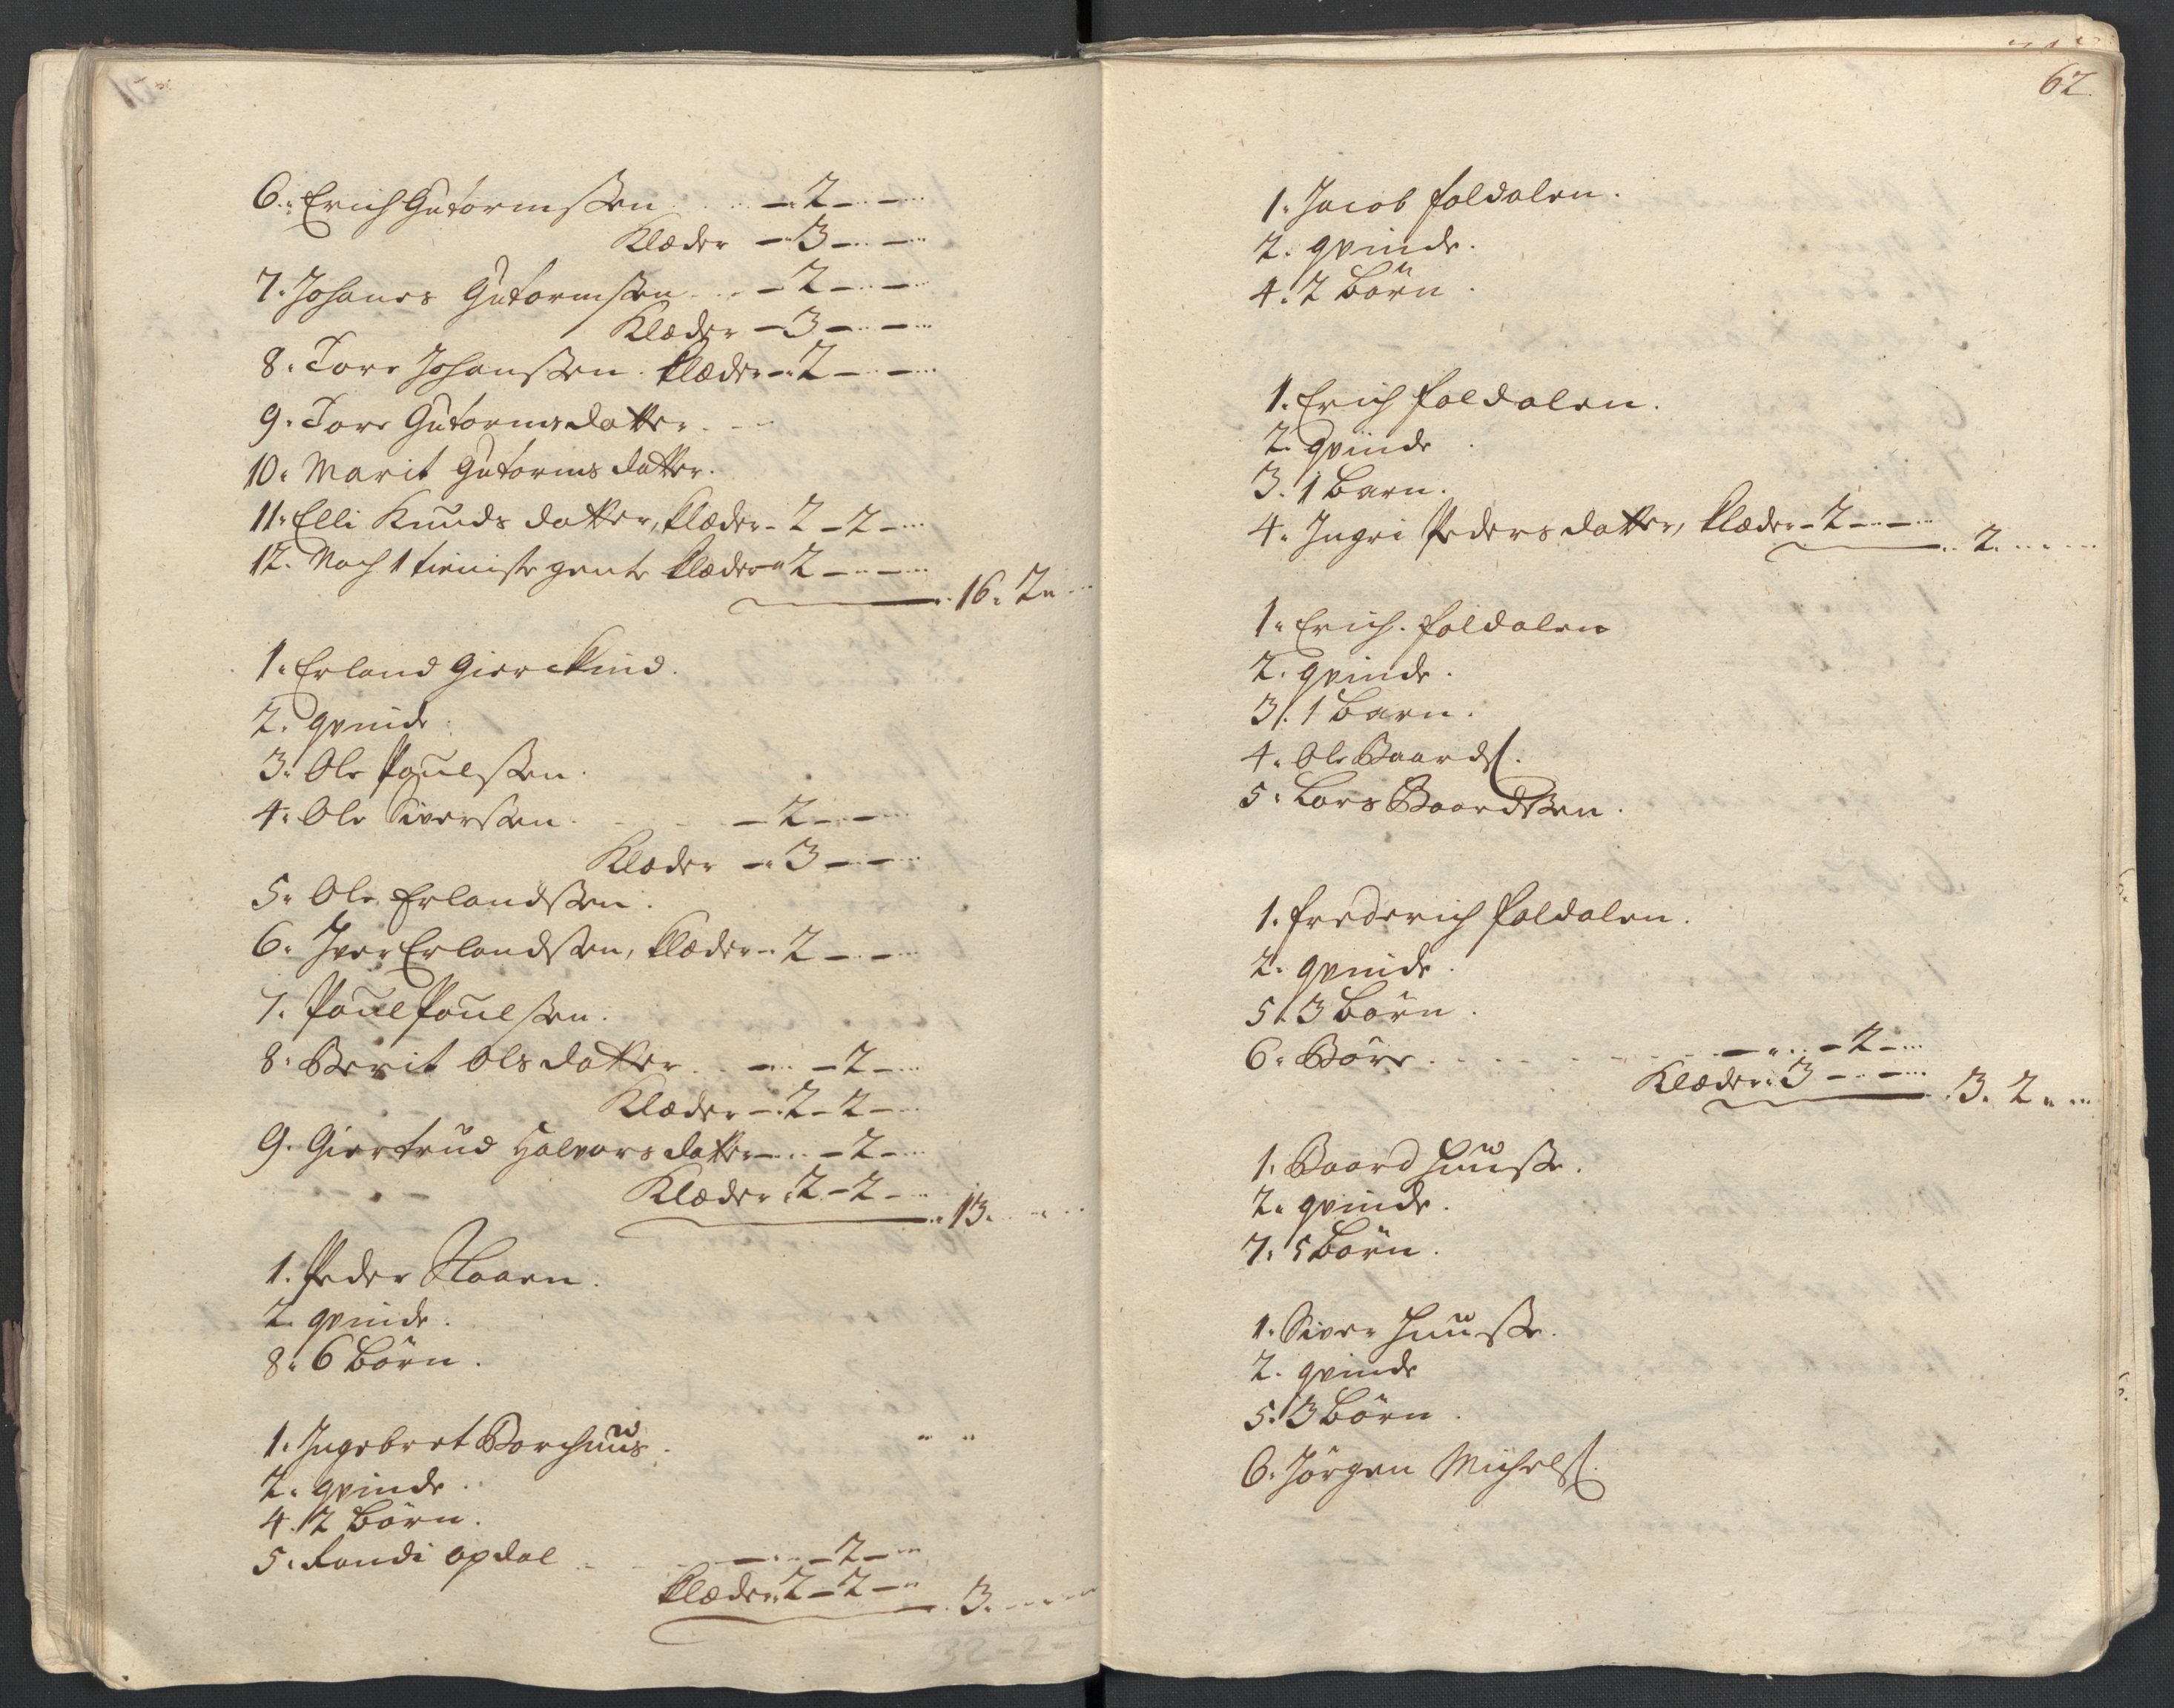 6. Erich Gutormssen - 2 - -
Klæder - 3 - -
7. Johanes Gutormssen - 2 - -
Klæder - 3 - -
8. Tore Johanssen. Klæder - 2 - -
9. Tore Gutormsdatter.
10. Marit Gutorms datter.
11. Elli Knuds datter, Klæder - 2 - 2 -
12. Noch 1 tieniste gente Klæder 2 - -
16. 2.
1. Erland Gierckind.
2. qvinde.
3. Ole Poulssen.
4. Ole Siverssen. - 2 - -
Klæder - 3 - -
5. Ole Erlandssen.
6. Iver Erlandssen, Klæder - 2 - -
7. Poul Poulssen.
8. Berit Ols datter - - 2 -
Klæder - 2 - 2 -
9. Giertrud Halvors datter - - 2 -
Klæder. 2 - 2 -
13.
1. Peder
2. qvinde.
8. 6 Börn.
1. Ingebret Borchuus.
2. qvinde.
4. 2 Börn.
5. Randi Opdal - - 2 -
Klæder. 2 - 2 -
3.
32 - 2 -
62.
1. Jacob foldalen.
2. qvinde.
4. 2 Börn.
1. Erich foldalen.
2. qvinde.
3. 1 Barn.
4. Ingri Peders datter, Klæder - 2 - -
2.
1. Erich. foldalen
2. qvinde.
3. 1 Barn.
4. Ole Baards.
5. Lars Baardssen.
1. Frederich foldalen.
2. qvinde.
5. 3 Börn.
6. Böre. - - 2 -
Klæder. 3 - -
3. 2.
1. Baard Huusse.
2. qvinde.
7. 5 Börn.
1. Siver Huusse.
2. qvinde
5. 3 Börn.
6. Jörgen Michels.